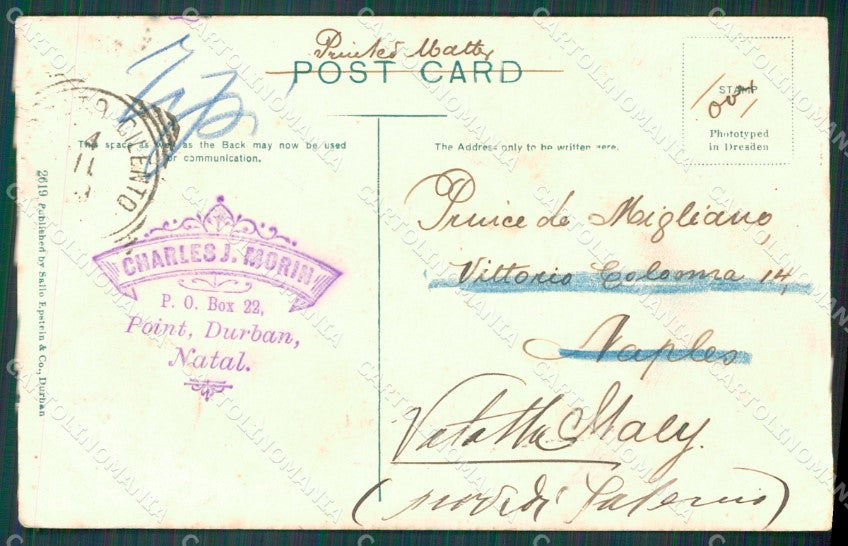 Printed Matter
POST CARD
This space as well as the Back may now be used
for communication.
The Address only to be written here.
STAMP
Phototyped
in Dresden
CILENTO
4
11
CHARLES J. MORIN
P. O. Box 22,
Point, Durban,
Natal.
2619 Published by Sallo Epstein & Co., Durban
Prince de Migliano,
Vittorio Colonna 14,
Naples
Italy.
Salerno)
CARTOLINOMANIA